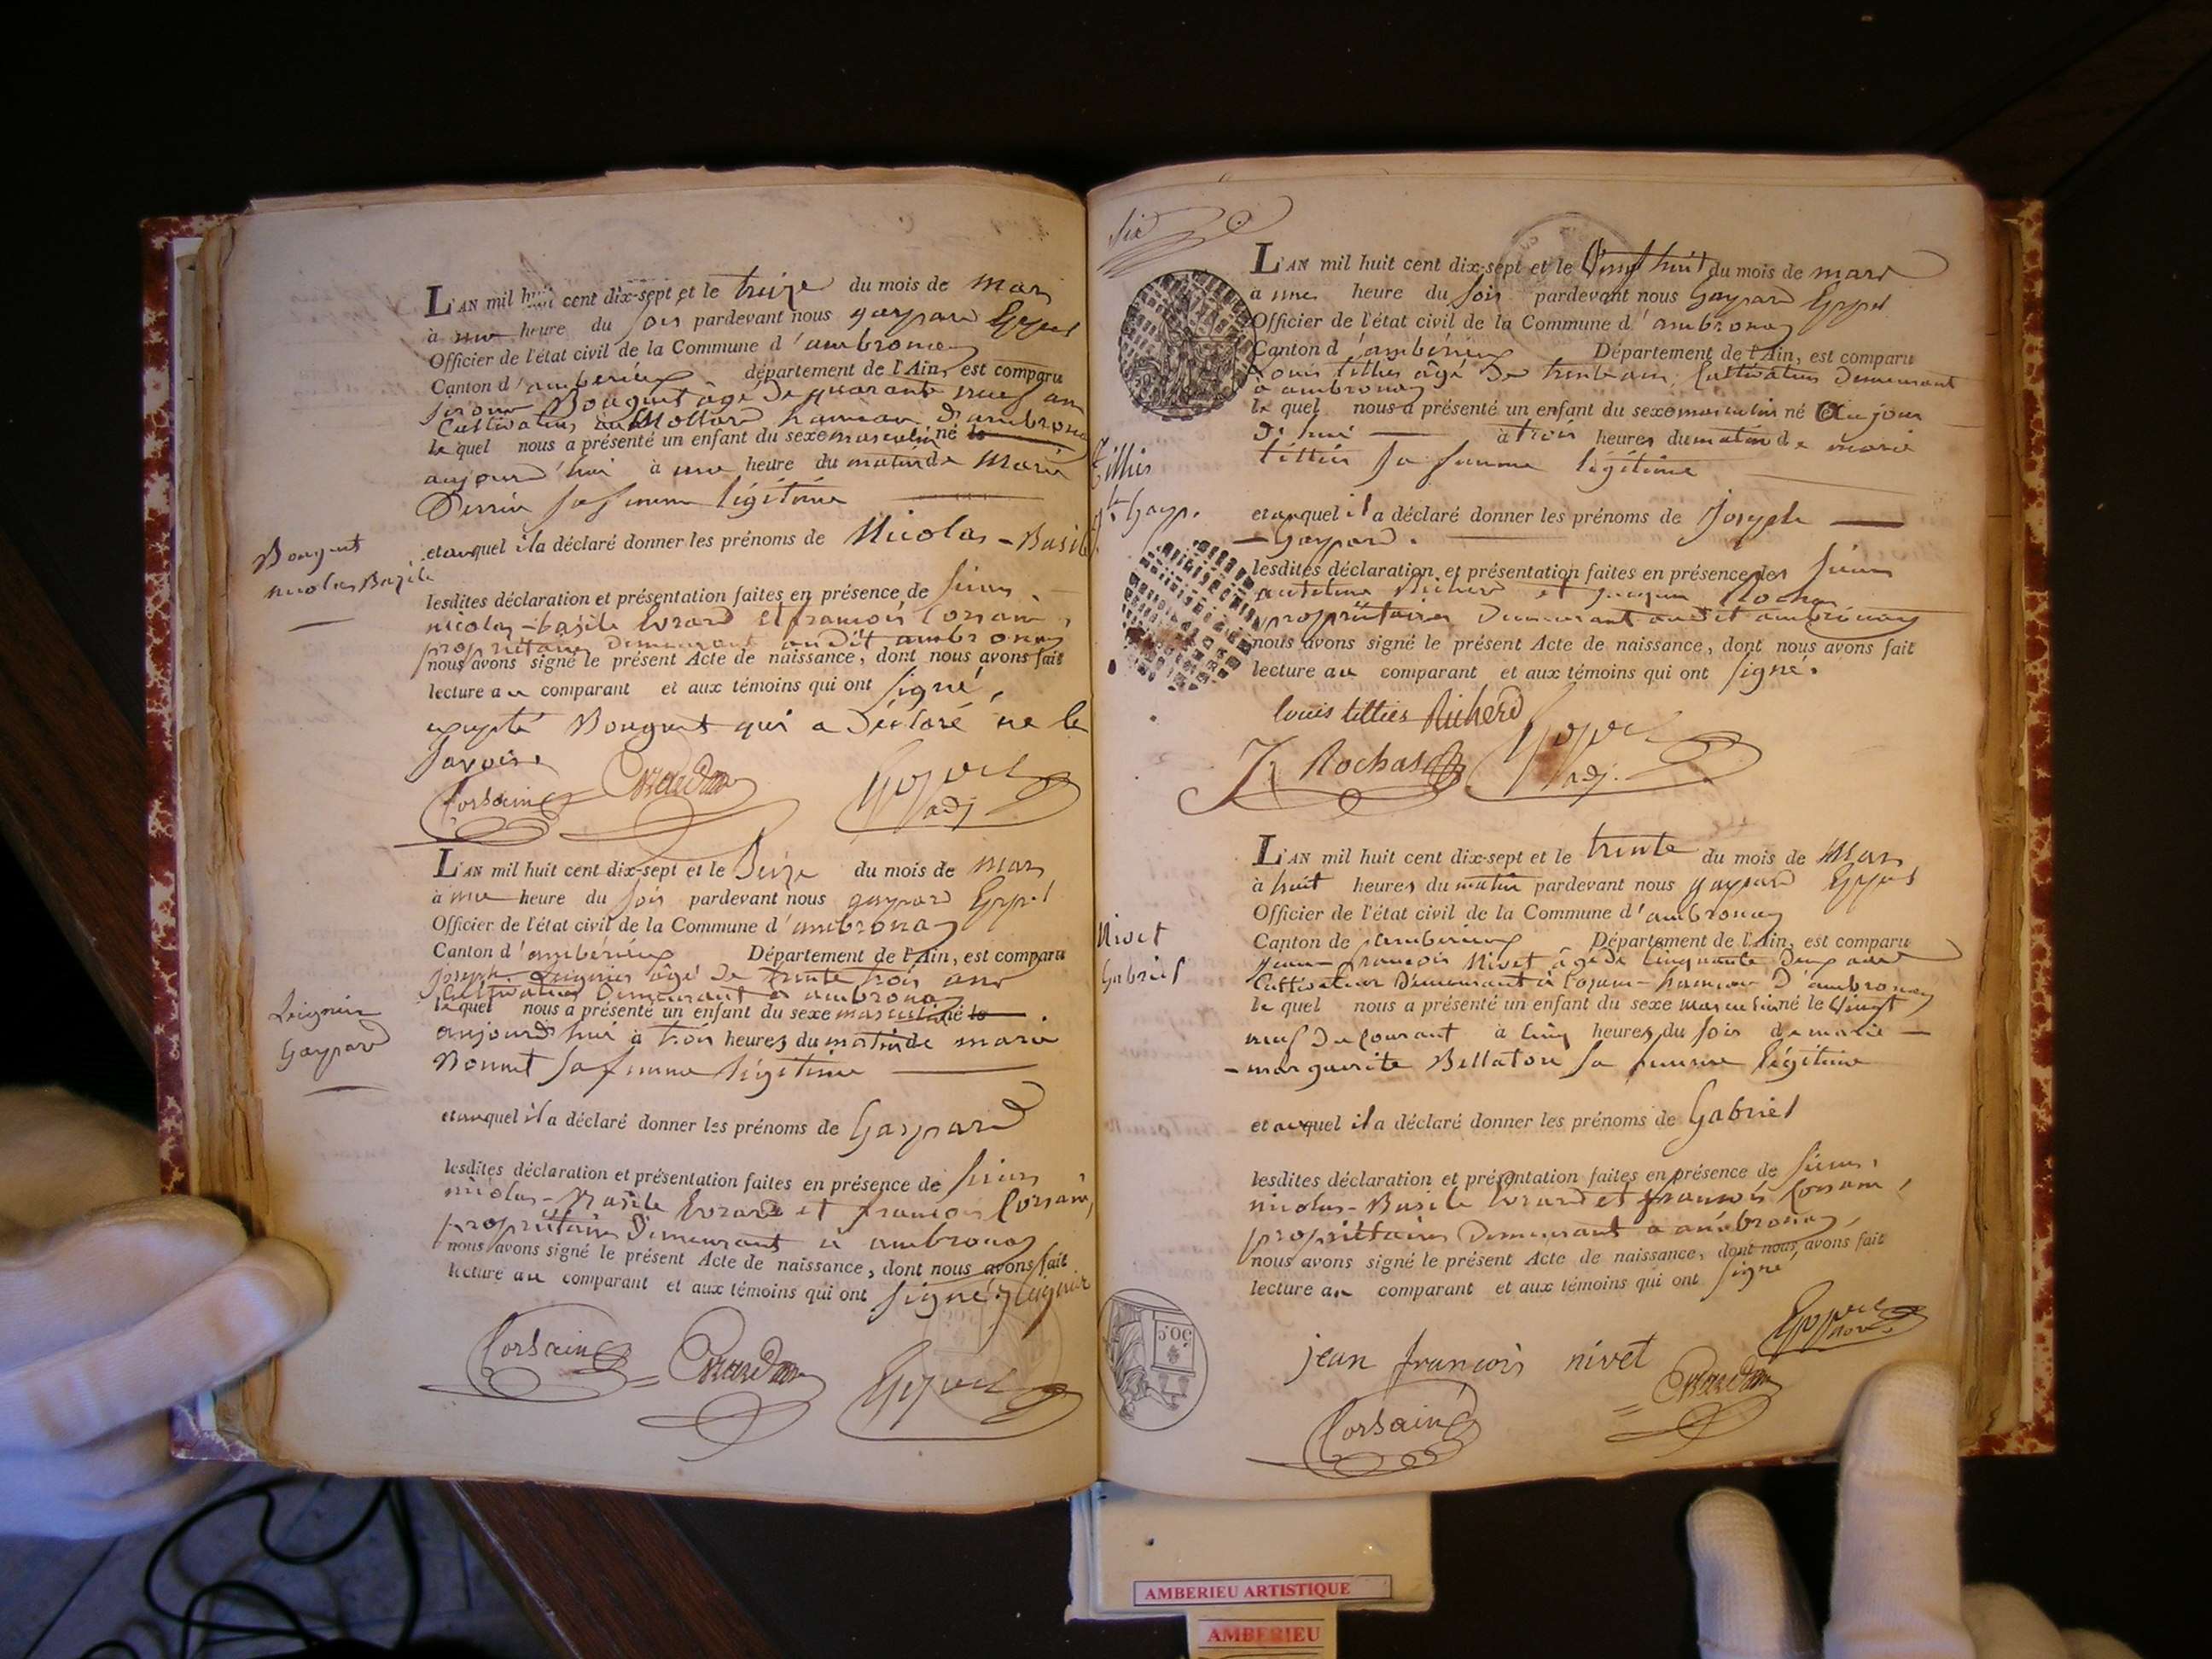 L'AN mil huit cent dix-sept et le treize du mois de mars
à une heure du soir pardevant nous gaspard Eppel
Officier de l'état civil de la Commune d'ambronay
Canton d'amberieux département de l'Ain, est comparu
Bouguet âgé de quarante neuf ans
Cultivateur au Mollard hameau d'ambronay
lequel nous a présenté un enfant du sexe masculin né le
aujourd'hui à une heure du matin de Marie
Perrin sa femme légitime
Bouguet
nicolas Bazile
et auquel il a déclaré donner les prénoms de Nicolas-Basile
lesdites déclaration et présentation faites en présence de sieurs
nicolas-basile Evrard et francois Corsain,
propriétaires demeurant audit ambronay
nous avons signé le présent Acte de naissance, dont nous avons fait
lecture au comparant et aux témoins qui ont signé,
excepté Bouguet qui a déclaré ne le
savoir.
Corsain Evrard Eppel
adj
L'AN mil huit cent dix-sept et le Seize du mois de mars
à une heure du soir pardevant nous gaspard Eppel
Officier de l'état civil de la Commune d'ambronay
Canton d'amberieux Département de l'Ain, est comparu
joseph Leignier âgé de trente trois ans
Cultivateur demeurant à ambronay
lequel nous a présenté un enfant du sexe masculin né le
aujourd'hui à trois heures du matin de marie
Bonnet sa femme légitime
Leignier
Gaspard
et auquel il a déclaré donner les prénoms de Gaspard
lesdites déclaration et présentation faites en présence de sieurs
nicolas-Basile Evrard et francois Corsain,
propriétaires demeurant à ambronay
nous avons signé le présent Acte de naissance, dont nous avons fait
lecture au comparant et aux témoins qui ont signé. j Leignier
Corsain Evrard Eppel
six
L'AN mil huit cent dix-sept et le Vingt huit du mois de mars
à une heure du soir pardevant nous Gaspard Eppel
Officier de l'état civil de la Commune d'ambronay
Canton d'amberieux Département de l'Ain, est comparu
Louis tillier âgé de trente ans, Cultivateur demeurant
à ambronay
lequel nous a présenté un enfant du sexe masculin né Aujour
d'hui à trois heures du matin de marie
tillier sa femme légitime
Tillier
jh Gasp.
et auquel il a déclaré donner les prénoms de Joseph
Gaspard.
lesdites déclaration et présentation faites en présence des sieurs
antelme Richerd et jacques Rochas
propriétaires demeurant audit ambronay
nous avons signé le présent Acte de naissance, dont nous avons fait
lecture au comparant et aux témoins qui ont signé.
louis tillier Richerd
Rochas Eppel
adj.
L'AN mil huit cent dix-sept et le trente du mois de Mars
à huit heures du matin pardevant nous gaspard Eppel
Officier de l'état civil de la Commune d'ambronay
Canton de amberieux Département de l'Ain, est comparu
jean-francois Nivet âgé de cinquante deux ans
Cultivateur demeurant à hameau d'ambronay
lequel nous a présenté un enfant du sexe masculin né le Vingt
neuf du courant à cinq heures du soir de marie
marguerite Bellaton sa femme légitime
Nivet
Gabriel
et auquel il a déclaré donner les prénoms de Gabriel
lesdites déclaration et présentation faites en présence de sieurs,
nicolas-Basile Evrard et francois Corsain,
propriétaires demeurant à ambronay,
nous avons signé le présent Acte de naissance, dont nous avons fait
lecture au comparant et aux témoins qui ont signé
Eppel
jean francois nivet
Corsain Evrard
50 C.
AMBERIEU ARTISTIQUE
AMBERIEU